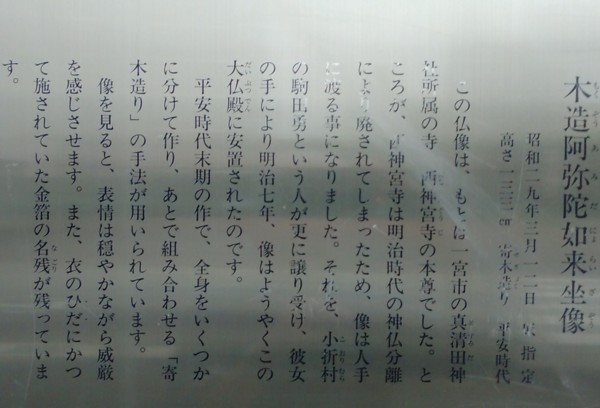 木造阿弥陀如来坐像
昭和二九年三月一二日 県指定
高さ一三三㎝ 寄木造り 平安時代
この仏像は、もとは一宮市の真清田神
社所属の寺 西神宮寺の本尊でした。と
ころが、西神宮寺は明治時代の神仏分離
により廃されてしまったため、像は人手
に渡る事になりました。それを、小折村
の駒田勇という人が更に譲り受け、彼女
の手により明治七年、像はようやくこの
大仏殿に安置されたのです。
平安時代末期の作で、全身をいくつか
に分けて作り、あとで組み合わせる「寄
木造り」の手法が用いられています。
像を見ると、表情は穏やかながら威厳
を感じさせます。また、衣のひだにかつ
て施されていた金箔の名残が残っていま
す。